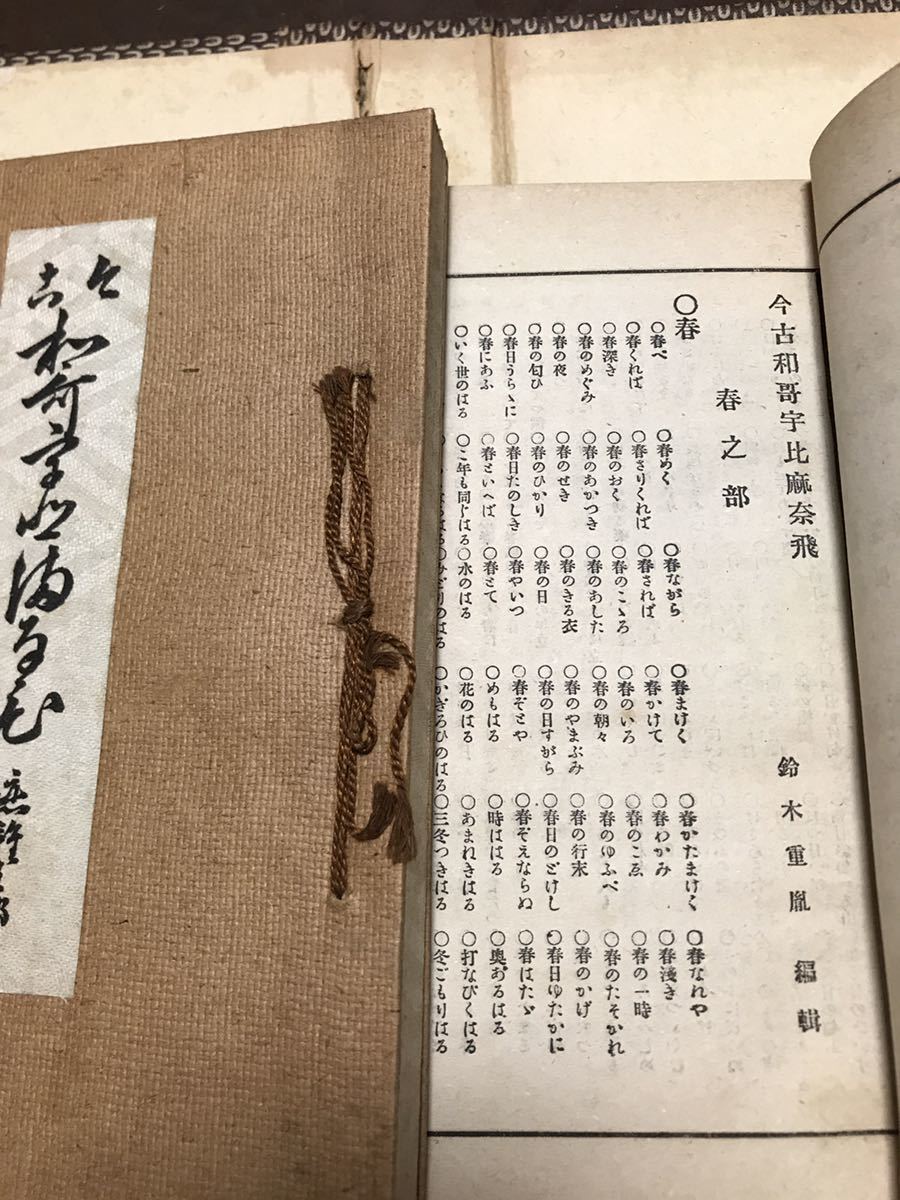 今古和哥宇比麻奈飛
鈴木重胤 編輯
春之部
〇春
〇春べ 〇春めく 〇春ながら 〇春まけく 〇春かたまけく 〇春なれや
〇春くれば 〇春さりくれば 〇春されば 〇春かけて 〇春わかみ 〇春淺き
〇春深き 〇春のおく 〇春のこゝろ 〇春のいろ 〇春のこゑ 〇春の一時
〇春のめぐみ 〇春のあかつき 〇春のあした 〇春の朝々 〇春のゆふべ 〇春のたそかれ
〇春の夜 〇春のせき 〇春のきる衣 〇春のやまぶみ 〇春の行末 〇春のかげ
〇春の匂ひ 〇春のひかり 〇春の日 〇春の日すがら 〇春日のどけし 〇春日ゆたかに
〇春日うらゝに 〇春日たのしき 〇春やいつ 〇春ぞとや 〇春ぞえならぬ 〇春はたゞ
〇春にあふ 〇春といへば 〇春とて 〇めもはる 〇時はる 〇奥あるはる
〇いく世のはる 〇こ年も同じはる 〇水のはる 〇花のはる 〇あまれきはる 〇打なびくはる
〇みどりのはる 〇かぎろひのはる 〇三冬つきはる 〇冬ごもりはる
今古
和哥